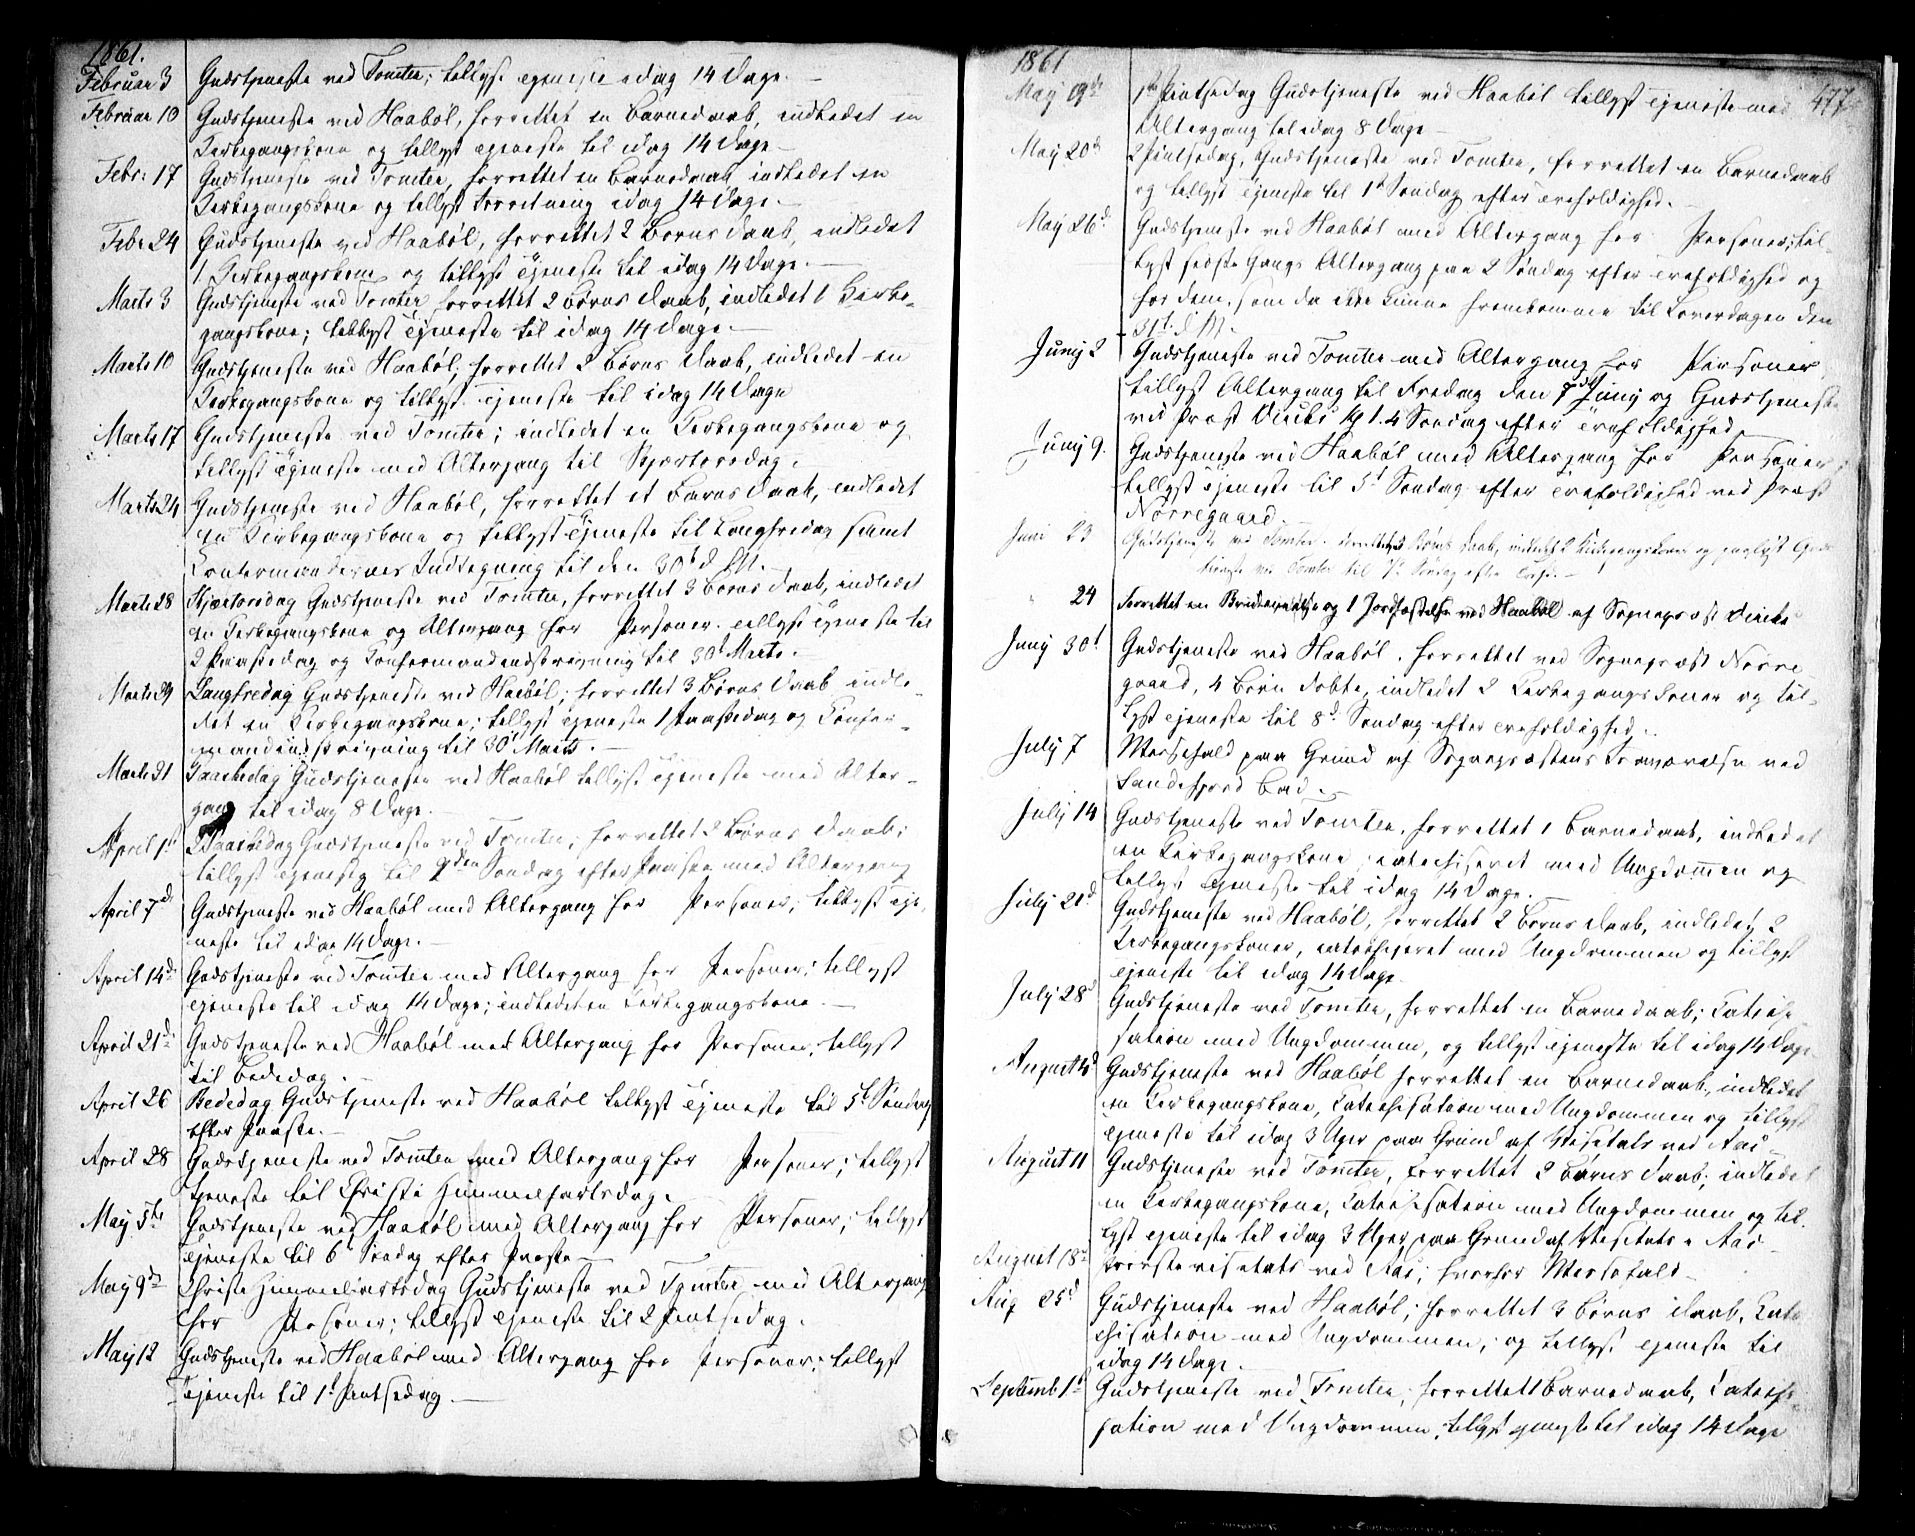 1861.
Februar 3 Gudstjeneste ved Tomter; tillyst Tjeneste idag 14 Dage.
Februar 10 Gudstjeneste ved Haabøl, forrettet en Barnedaab, indledet en
Kirkegangskone og tillyst Tjeneste til idag 14 Dage
Febr: 17 Gudstjeneste ved Tomter, forrettet en Barnedaab, indledet en
Kirkegangskone og tillyst Forretning idag 14 Dage.
Febr 24 Gudstjeneste ved Haabøl, forrettet 2 Børns Daab, indledet
1 Kirkegangskone og tillyst Tjeneste til idag 14 Dage.
Marts 3 Gudstjeneste ved Tomter forrettet 2 Børns Daab, indledet 1 Kirke-
gangskone; tillyst Tjeneste til idag 14 Dage.
Marts 10 Gudstjeneste ved Haabøl, forrettet 2 Børns Daab, indledet en
Kirkegangskone og tillyst Tjeneste til idag 14 Dage
Marts 17 Gudstjeneste ved Tomter; indledet en Kirkegangskone og
tillyst Tjeneste med Altergang til Skjærtorsdag.
Marts 24 Gudstjeneste ved Haabøl, forrettet et Barns Daab, indledet
en Kirkegangskone og tillyst Tjeneste til Langfredag samt
Confirmandernes Indtegning til den 30t d. M.
Marts 28 Skjærtorsdag Gudstjeneste ved Tomter, forrettet 3 Børns Daab, indledet
en Kirkegangskone og Altergang for Personer. tillyst Tjeneste til
2 Paaskedag og Confirmandindskrivning til 30t Marts.
Marts 29 Langfredag Gudstjeneste ved Haabøl; forrettet 3 Børns Daab indle-
det en Kirkegangskone; tillyst Tjeneste 1 Paaskedag og Confir-
mandindskrivning til 30t Marts.
Marts 31 Paaskedag Gudstjeneste ved Haabøl tillyst Tjeneste med Alter-
gang til idag 8 Dage.
April 1st 2 Paaskedag Gudstjeneste ved Tomter; forrettet 2 Børns Daab;
tillyst Tjeneste til 2den Søndag efter Paaske med Altergang
April 7d Gudstjeneste ved Haabøl med Altergang for Personer; tillyst Tje-
neste til idag 14 Dage.
April 14d Gudstjeneste ved Tomter med Altergang for Personer; tillyst
Tjeneste til idag 14 Dage; indledet en Kirkegangskone.
April 21d Gudstjeneste ved Haabøl med Altergang for Personer, tillyst
til Bededag.
April 26 Bededag Gudstjeneste ved Haabøl tillyst Tjeneste til 5t Søndag
efter Paaske.
April 28 Gudstjeneste ved Tomter med Altergang for Personer; tillyst
Tjeneste til Christi Himmelfartsdag.
May 5te Gudstjeneste ved Haabøl med Altergang for Personer; tillyst
Tjeneste til 6 Søndag efter Paaske
May 9de Christi Himmelfartsdag Gudstjeneste ved Tomter med Altergang
for Personer; tillyst Tjeneste til 2 Pintsedag.
May 12 Gudstjeneste ved Haabøl med Altergang for Personer; tillyst
Tjeneste til 1t Pintsedag.
1861
477
May 19de 1ste Pintsedag Gudstjeneste ved Haabøl tillyst Tjeneste med
Altergang til idag 8 Dage
May 20de 2 Pintsedag, Gudstjeneste ved Tomter, forrettet en Barnedaab
og tillyst Tjeneste til 1st Søndag efter Trefoldighed.
May 26d Gudstjeneste ved Haabøl med Altergang for Personer; til-
lyst sidste Gangs Altergang paa 2 Søndag efter Trefoldighed og
for dem, som da ikke kunne fremkomme til Løverdagen den
31t. d. M.
Juny 2 Gudstjeneste ved Tomter med Altergang for Personer
tillyst Altergang til Fredag den 7de Juny og Gudstjeneste
ved Provst 4 Søndag efter Trefoldighed
Juny 9. Gudstjeneste ved Haabøl med Altergang for Personer;
tillyst Tjeneste til 5t Søndag efter Trefoldighed ved Præst
Nörregaard
Juni 23 Gudstjeneste ved Tomter. Børns Daab, indledet 2 Kirkegangskoner og paalyst Guds-
tjeneste ved Tomter til 7de Søndag efter Trefo.
24 Forrettet en Brudevielse og 1 Jordfæstelse ved Haabøl af Sognepræst
Juny 30t Gudstjeneste ved Haabøl. forrettet ved Sognepræst Nörre
gaard, 4 Børn døbte, indledet 2 Kirkegangskoner og til-
lyst Tjeneste til 8d. Søndag efter Trefoldighed.
July 7 Messefald paa Grund af Sognepræstens Fraværelse ved
Sandefjord Bad.
July 14 Gudstjeneste ved Tomter, forrettet 1 Barnedaab, indledet
en Kirkegangskone; catechiseret med Ungdommen og
tillyst Tjeneste til idag 14 Dage.
July 21d Gudstjeneste ved Haabøl, forrettet 2 Børns Daab, indledet 2
Kirkegangskoner, catechiseret med Ungdommen og tillyst
Tjeneste til idag 14 Dage.
July 28d Gudstjeneste ved Tomter, forrettet en Barnedaab; Catechi-
sation med Ungdommen, og tillyst Tjeneste til idag 14 Dage
August 4d Gudstjeneste ved Haabøl forrettet en Barnedaab, indledet
en Kirkegangskone, Catechisation med Ungdommen og tillyst
Tjeneste til idag 3 Uger paa Grund af Visitats ved Aas
August 11 Gudstjeneste ved Tomter, forrettet 2 Børns Daab; indledet
en Kirkegangskone, Catechisation med Ungdommen og til-
lyst Tjeneste til idag 3 Uger paa Grund af Visitats i Aas
August 18de Provstevisitats ved Aas; hvorfor Messefald
Aug 25d Gudstjeneste ved Haabøl; forrettet 3 Børns Daab, Cate-
chisation med Ungdommen; og tillyst Tjeneste til
idag 14 Dage.
Septemb 1st Gudstjeneste ved Tomter, forrettet 1 Barnedaab, Catechi-
sation med Ungdommen; tillyst Tjeneste til idag 14 Dage